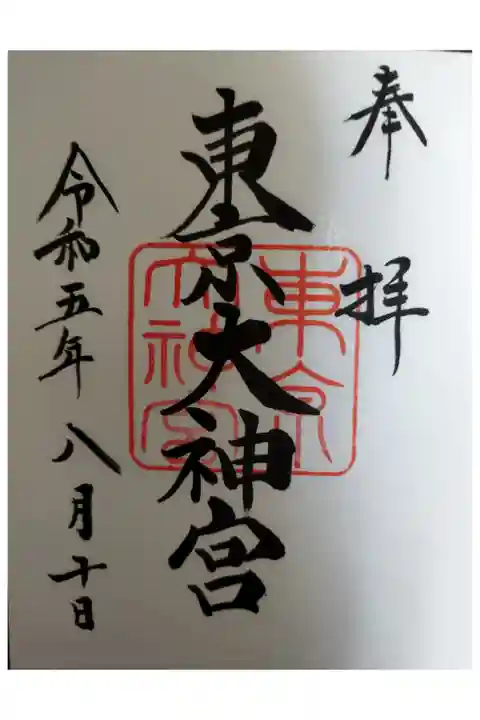 奉拝
東京大神宮
東京大神宮
令和五年八月十日